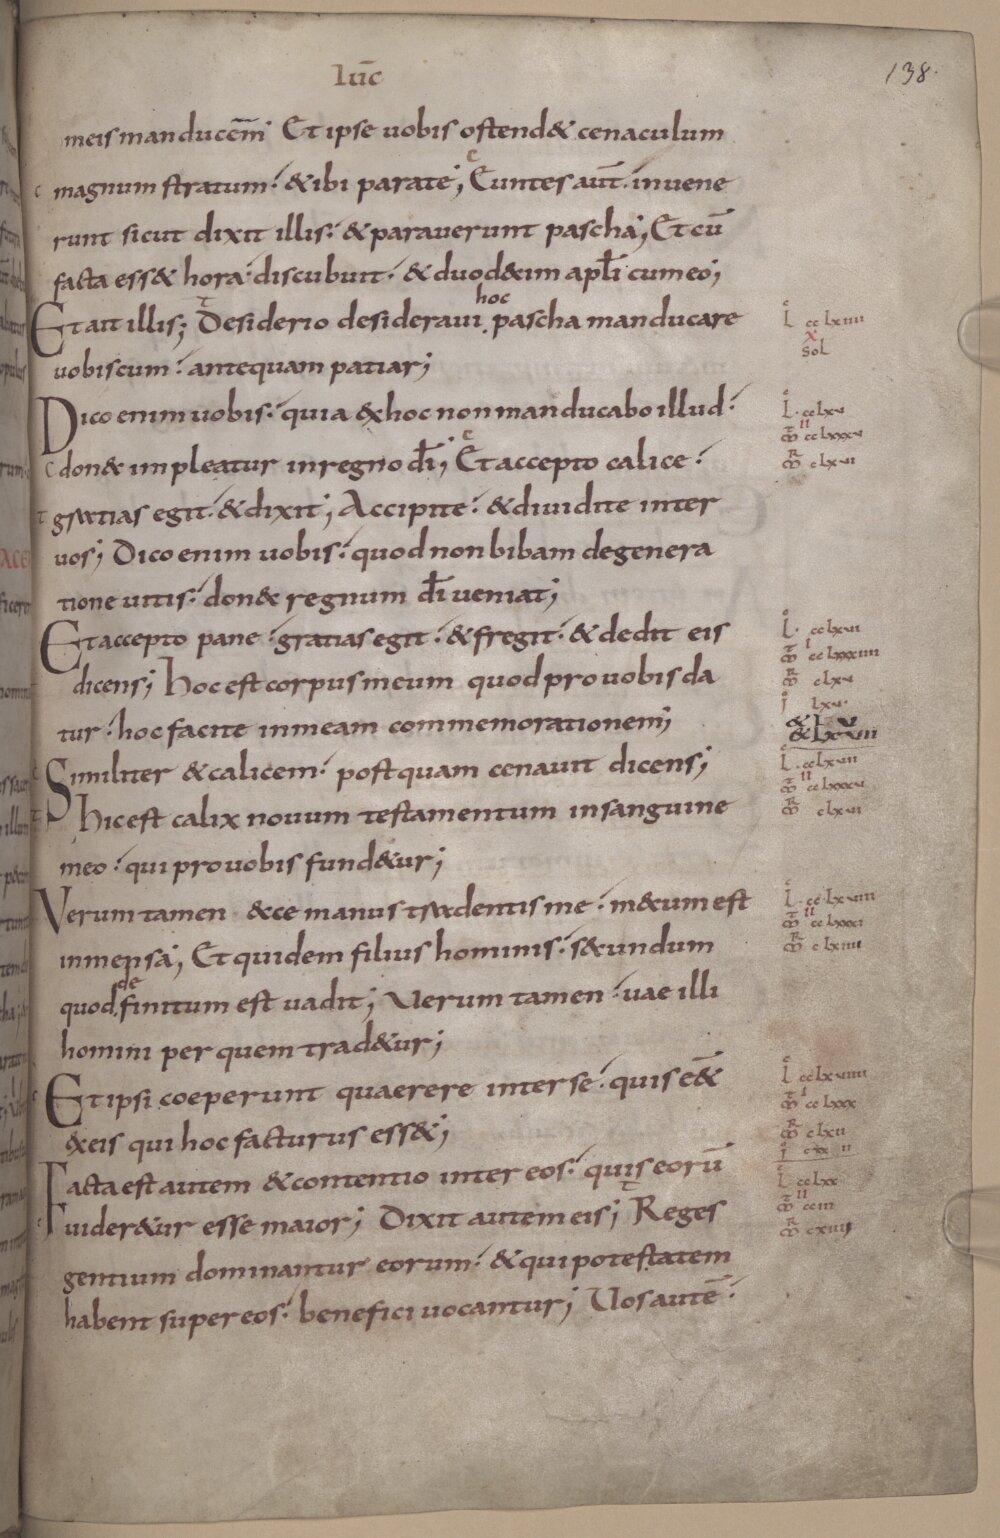 lūc
138.
meis manducem̄ Et ipse uobis ostend& cenaculum
magnum stratum: & ibi parate; Euntes aut̄ inuene
runt sicut dixit illis: & parauerunt pascha; Et cū
facta ess& hora: discubuit: & duod&im apl̄i cum eo;
Et ait illis; Desiderio desideraui hoc pascha manducare
uobiscum: antequam patiar;
Dico enim uobis: quia &hoc non manducabo illud:
don& impleatur in regno dī; Et accepto calice:
gratias egit: & dixit; Accipite: & diuidite inter
uos; Dico enim uobis: quod non bibam de genera
tione uitis: don& regnum dī ueniat;
Et accepto pane: gratias egit: & fregit: & dedit eis
dicens; Hoc est corpus meum quod pro uobis da
tur: hoc facite in meam commemorationem;
Similiter & calicem: postquam cenauit dicens;
Hic est calix nouum testamentum in sanguine
meo: qui pro uobis fund&ur;
Verum tamen &ce manus tradentis me: m&um est
in mensa; Et quidem filius hominis: s&undum
quod definitum est uadit; Uerum tamen: uae illi
homini per quem trad&ur;
Et ipsi coeperunt quaerere inter se: quis ēē&
&eis qui hoc facturus ess&;
Facta est autem & contentio inter eos: quis eorū
uider&ur esse maior; Dixit autem eis; Reges
gentium dominantur eorum: & qui potestatem
habent super eos: benefici uocantur; Uos autē:
L cclxiiii
sol
L. cclxv
L. cclxvi
L. cclxvii